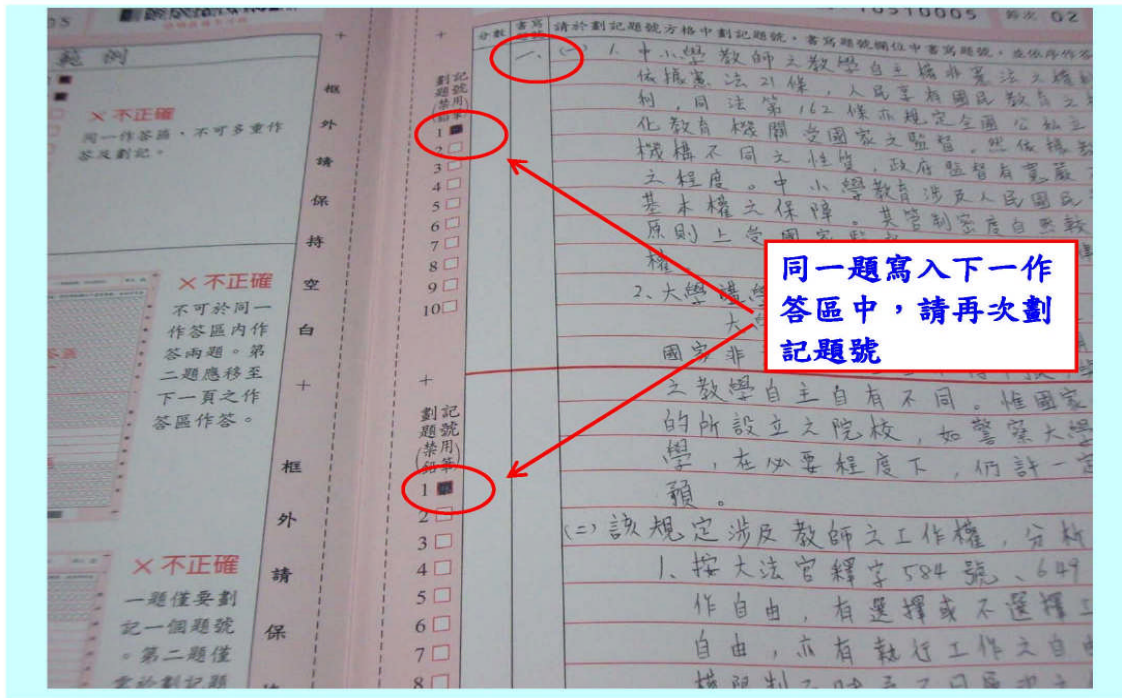 10510005 節次 02
範例
× 不正確
同一作答區,不可多重作
答及劃記。
× 不正確
不可於同一
作答區內作
答兩題。第
二題應移至
下一頁之作
答區作答。
× 不正確
一題僅要劃
記一個題號
。第二題僅
框外請保持空白
框外請保
劃記
題號
(禁用
鉛筆)
1
2
3
4
5
6
7
8
9
10
劃記
題號
(禁用
鉛筆)
1
2
3
4
5
6
7
8
分數 書寫題號 請於劃記題號方格中劃記題號,書寫題號欄位中書寫題號,並依序作答
一、(一) 1. 中小學教師之教學自主權非憲法之權利
依據憲法21條,人民享有國民教育之
利,同法第162條亦規定全國公私立
化教育機關受國家之監督,然依據
機構不同之性質,政府監督有寬嚴
之程度。中小學教育涉及人民國民
基本權之保障。其管制密度自無較
原則上受國家
權
2、大學講學
大
國家非
之教學自主自有不同。惟國家
的所設立之院校,如警察大學
學,在必要程度下,仍許一定
預。
(二)該規定涉及教師之工作權,分析
1、按大法官釋字584號、649
作自由,有選擇或不選擇工
自由,亦有執行工作之自由
同一題寫入下一作
答區中,請再次劃
記題號